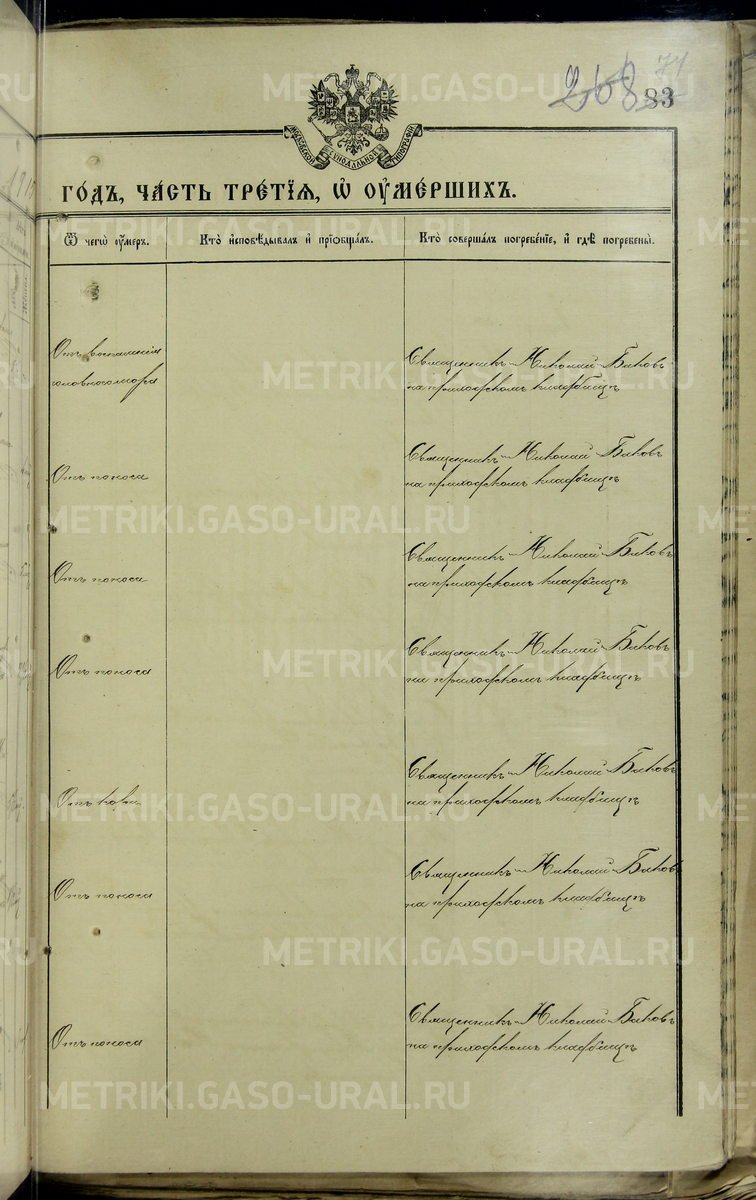 71
268
83
МОСКОВСКОЙ СѴНОДАЛЬНОЙ ТИПОГРАФІИ
ГО́ДЪ, ЧА́СТЬ ТРЕ́ТІѦ, Ѡ҆ ОУ҆МЕ́РШИХЪ.
Ѿ чегѡ̀ оу҆́меръ.
Кто̀ и҆сповѣ́дывалъ и҆ прїѡбща́лъ.
Кто̀ соверша́лъ погребе́нїе, и҆ гдѣ̀ погребены̀.
Отъ воспаленія
головного мозга
Священникъ Николай Быковъ
на приходскомъ кладбищѣ
Отъ поноса
Священникъ Николай Быковъ
на приходскомъ кладбищѣ
Отъ поноса
Священникъ Николай Быковъ
на приходскомъ кладбищѣ
Отъ поноса
Священникъ Николай Быковъ
на приходскомъ кладбищѣ
Отъ кори
Священникъ Николай Быковъ
на приходскомъ кладбищѣ
Отъ поноса
Священникъ Николай Быковъ
на приходскомъ кладбищѣ
Отъ поноса
Священникъ Николай Быковъ
на приходскомъ кладбищѣ
METRIKI.GASO-URAL.RU